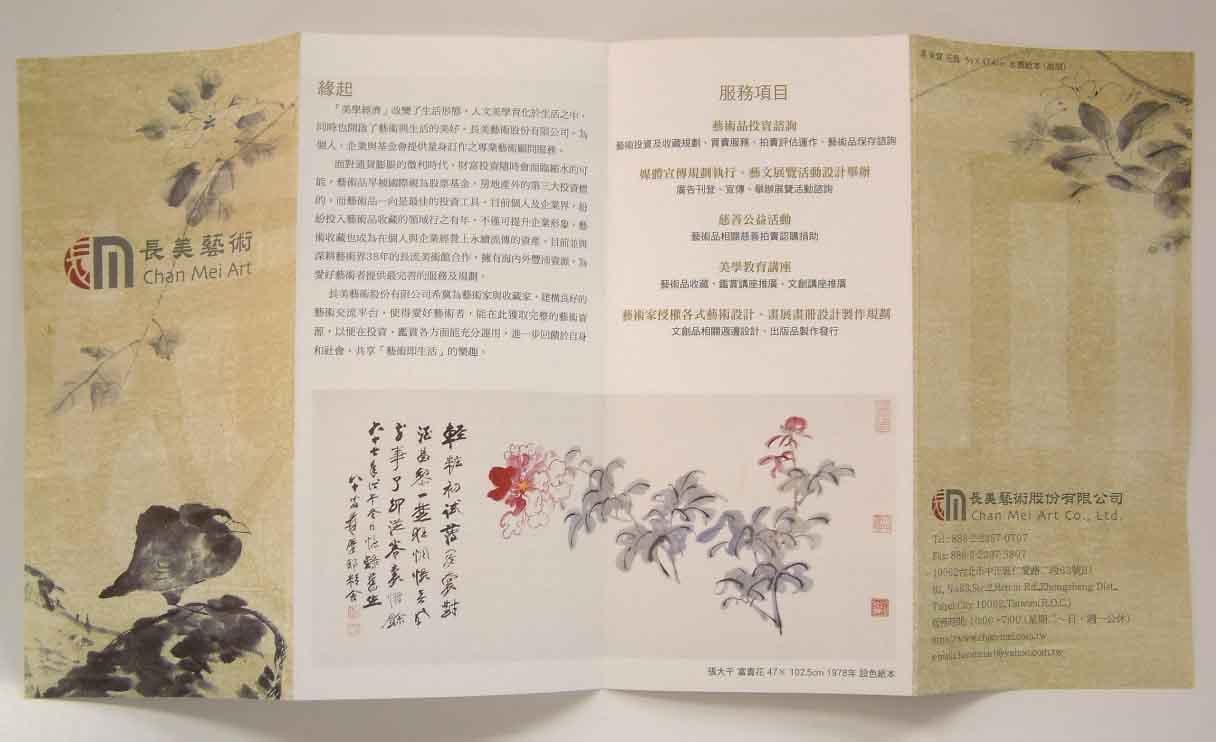 長美藝術
Chan Mei Art
緣起
「美學經濟」改變了生活形態，人文美學育化於生活之中，
同時也開啟了藝術與生活的美好，長美藝術股份有限公司，為
個人、企業與基金會提供量身訂作之專業藝術顧問服務。
面對通貨膨脹的微利時代，財富投資隨時會面臨縮水的可
能，藝術品早被國際視為股票基金，房地產外的第三大投資標
的，而藝術品一向是最佳的投資工具。目前個人及企業界，紛
紛投入藝術品收藏的領域行之有年，不僅可提升企業形象，藝
術收藏也成為在個人與企業經營上永續流傳的資產，目前並與
深耕藝術界38年的長流美術館合作，擁有海內外豐沛資源，為
愛好藝術者提供最完善的服務及規劃。
長美藝術股份有限公司希冀為藝術家與收藏家，建構良好的
藝術交流平台，使得愛好藝術者，能在此獲取完整的藝術資
源，以便在投資、鑑賞各方面能充分運用，進一步回饋於自身
和社會，共享「藝術即生活」的樂趣。
服務項目
藝術品投資諮詢
藝術投資及收藏規劃、買賣服務、拍賣評估運作、藝術品保存諮詢
媒體宣傳規劃執行、藝文展覽活動設計舉辦
廣告刊登、宣傳、舉辦展覽活動諮詢
慈善公益活動
藝術品相關慈善拍賣認購捐助
美學教育講座
藝術品收藏、鑑賞講座推廣、文創講座推廣
藝術家授權各式藝術設計、畫展畫冊設計製作規劃
文創品相關週邊設計、出版品製作發行
張大千 富貴花 47× 102.5cm 1978年 設色紙本
水墨紙本（局部）
長美藝術股份有限公司
Chan Mei Art Co., Ltd.
Tel: 886-2-2397-0707
Fax: 886-2-2397-3807
10062台北市中正區仁愛路二段63號B1
B1, No.63,Sec.2,Ren-ai Rd.,Zhongzheng Dist.,
Taipei City 10062,Taiwan(R.O.C.)
服務時間: 10:00 -7:00 (星期二～日，週一公休)